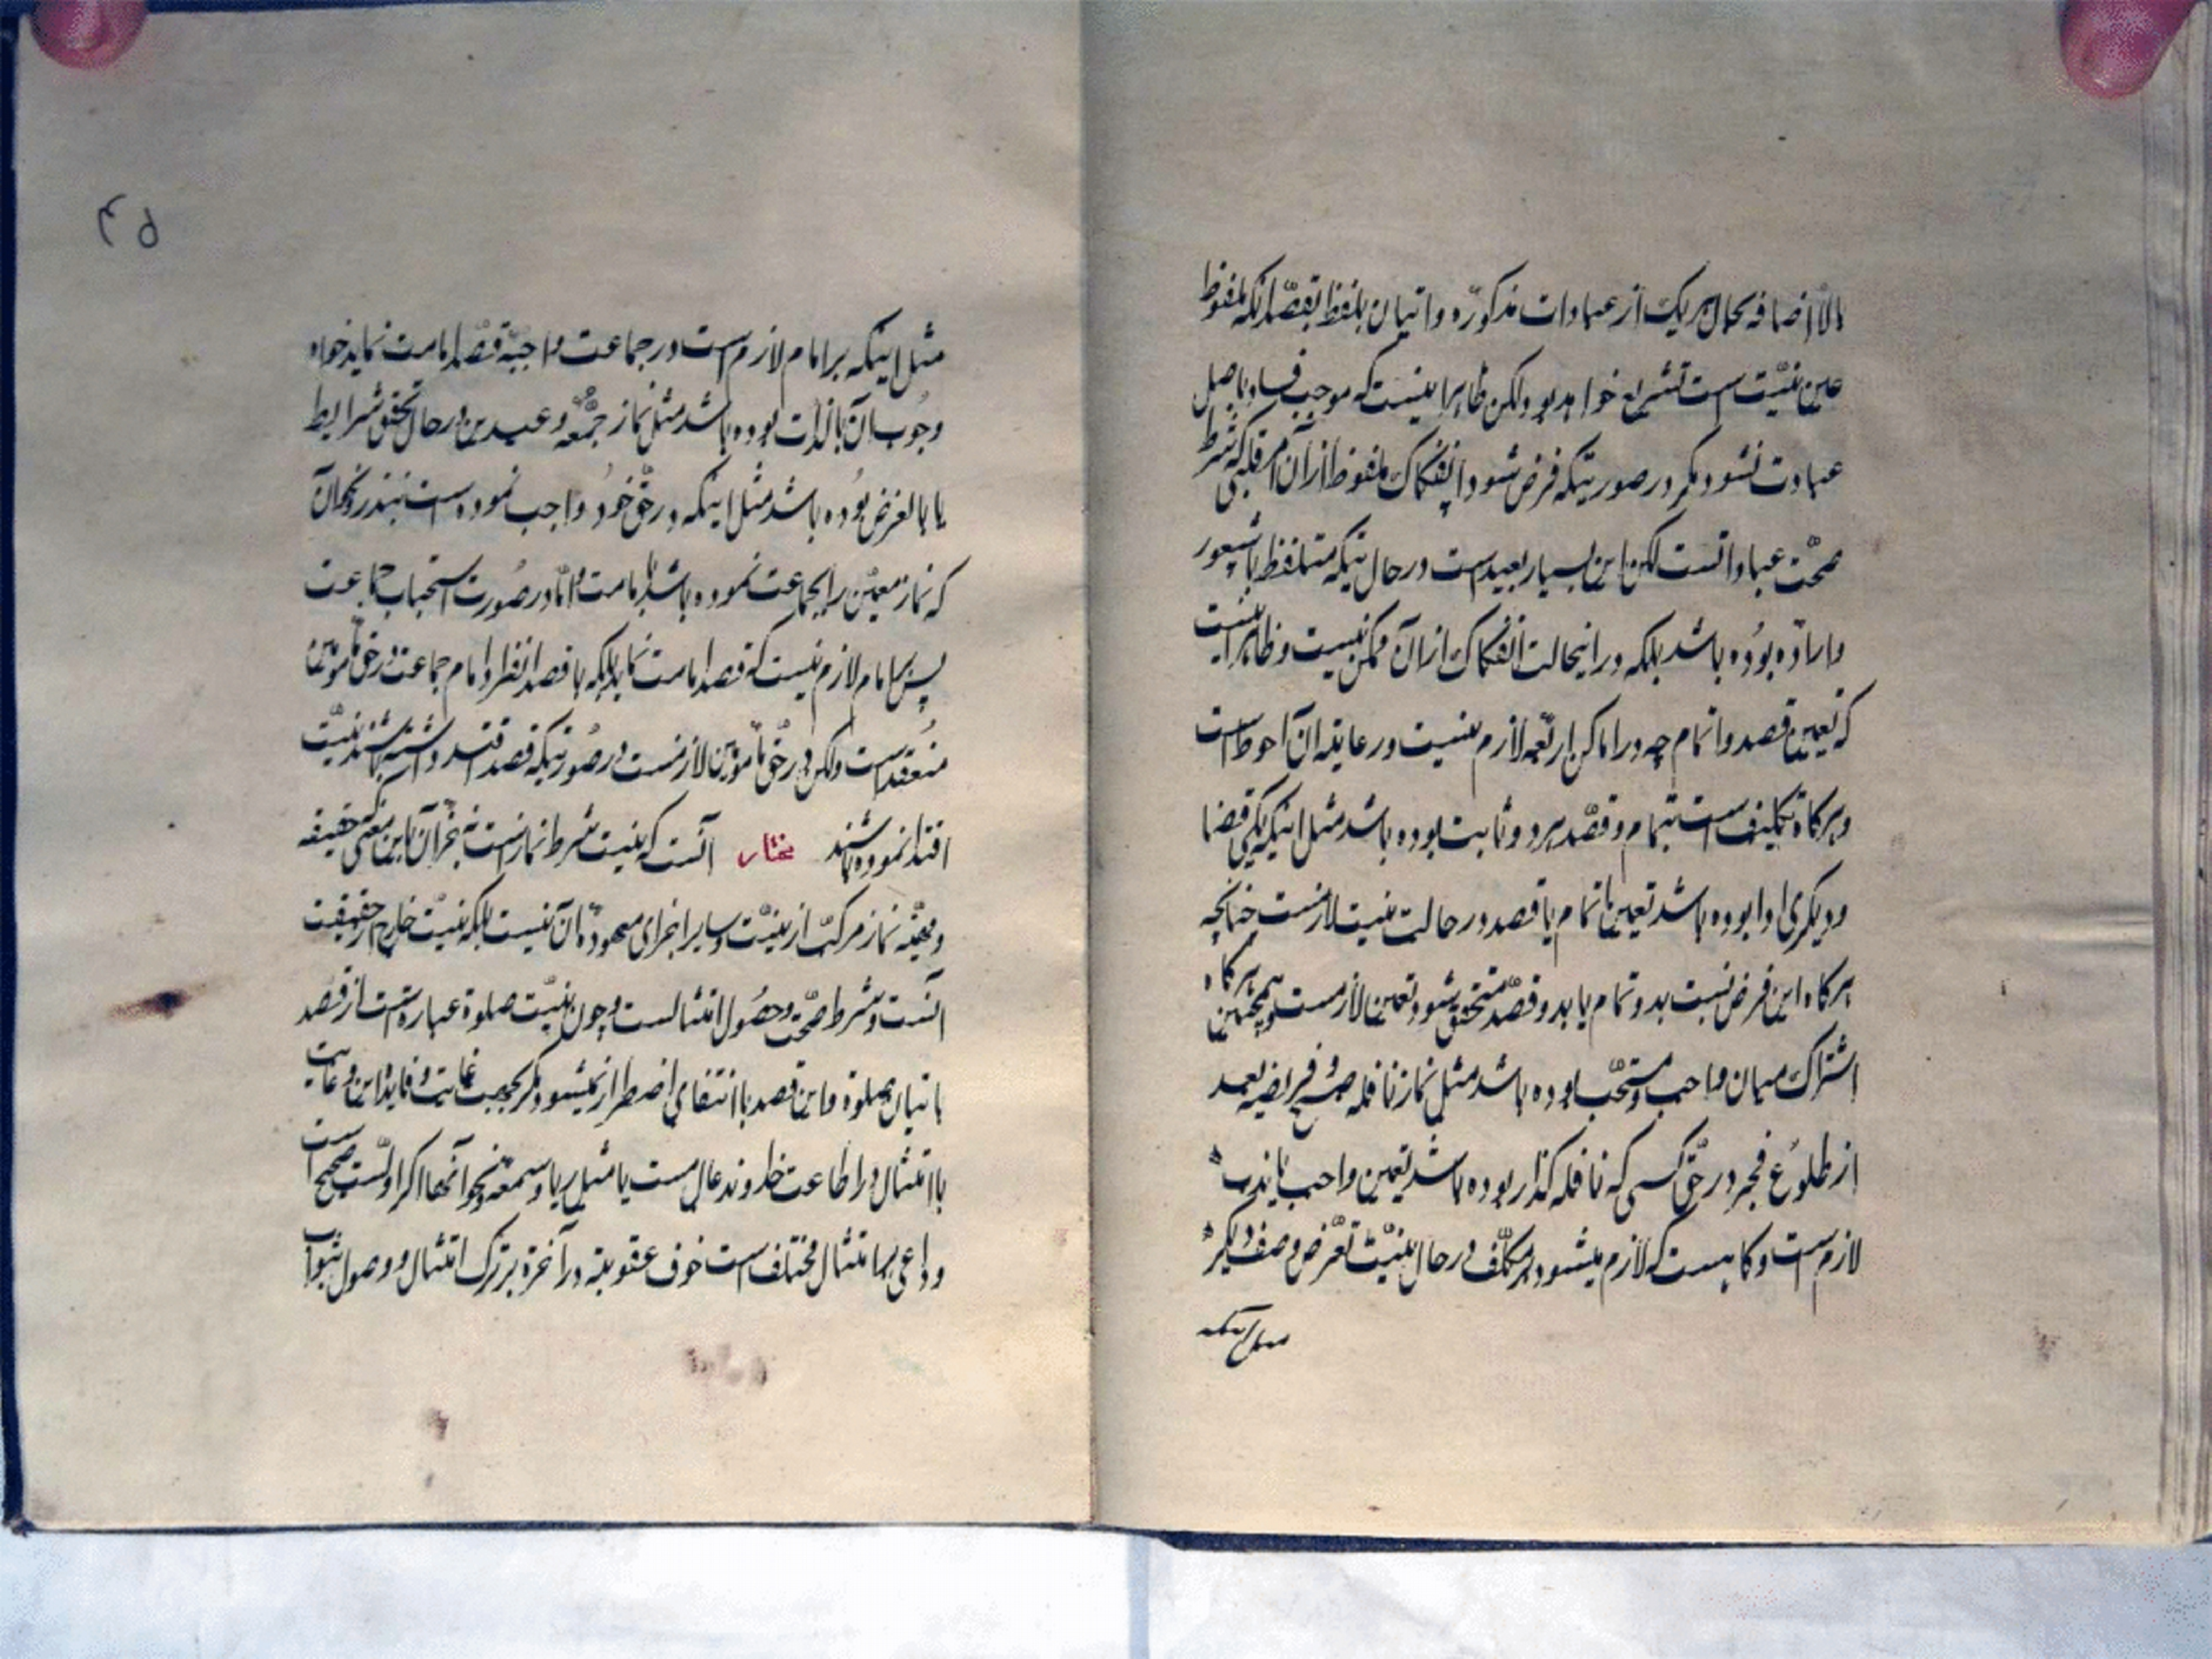 بالاضافه بحال هر یک از عبادات مذکوره و اتیان بلفظ بقصد آنکه ملفوظ
عین نیت است تشریع خواهد بود ولکن ظاهرا نیست که موجب فساد باصل
عبادت نشود مگر در صورتیکه فرض شود انفکاک ملفوظ از آن امر قلبی که شرط
صحت عباداتست لکن این بسیار بعید است در حالتیکه متلفظ با شعور
و اراده بوده باشد بلکه در اینحالت انفکاک از آن ممکن نیست و ظاهر اینست
که تعیین قصد و اتمام چه در اماکن اربعه لازم نیست و رعایته آن احوط است
و هرگاه تکلیف است بتمام و قصد هر دو ثابت بوده باشد مثل اینکه یکی قضا
و دیگری ادا بوده باشد تعیین تمام یا قصد در حالت نیت لازمست چنانچه
هرگاه این فرض نسبت بدو تمام یا بدو قصر متحقق شود تعیین لازمست و همچنین هرگاه
اشتراک میان واجب و مستحب بوده باشد مثل نماز نافله صبح و فریضه بعد
از طلوع فجر در حق کسی که نافله گذار بوده باشد تعیین واجب یا ندب
لازم است و گاهیست که لازم میشود بر مکلف در حال نیت تعرض وصف دیگر
مثل اینکه
۴۵
مثل اینکه بر امام لازم است در جماعت واجبه قصد امامت نماید خواه
وجوب آن بالذات بوده باشد مثل نماز جمعه و عیدین در حال تحقق شرایط
یا بالعرض بوده باشد مثل اینکه در حق خود واجب نموده است بنذر و نحو آن
که نماز معین را بجماعت نموده باشد بامامت و اما در صورت استحباب جماعت
پس بر امام لازم نیست که قصد امامت نماید بلکه با قصد انفراد امام جماعت در حق مأمومین
منعقد است ولکن در حق مأمومین لازمست در صورتیکه قصد اقتدا داشته باشند نیت
اقتدا نموده باشند مختار آنست که نیت شرط نماز است نه جزء آن باین معنی حقیقه
و مهیته نماز مرکب از نیت و سایر اجزای معهوده آن نیست بلکه نیت خارج از حقیقت
آنست و شرط صحت و حصول امتثالست و چون نیت صلوة عبارتست از قصد
باتیان بصلوة و این قصد با انتفای اضطرار نمیشود مگر بجهت غایت و فایده این و غایت
با امتثال در اطاعت خداوند عالم است یا مثل ریا و سمعه و نحو آنها اگر اولست صحیح است
و داعی بر امتثال مختلف است خوف عقوبته در آخرة بر ترک امتثال و وصول بثواب